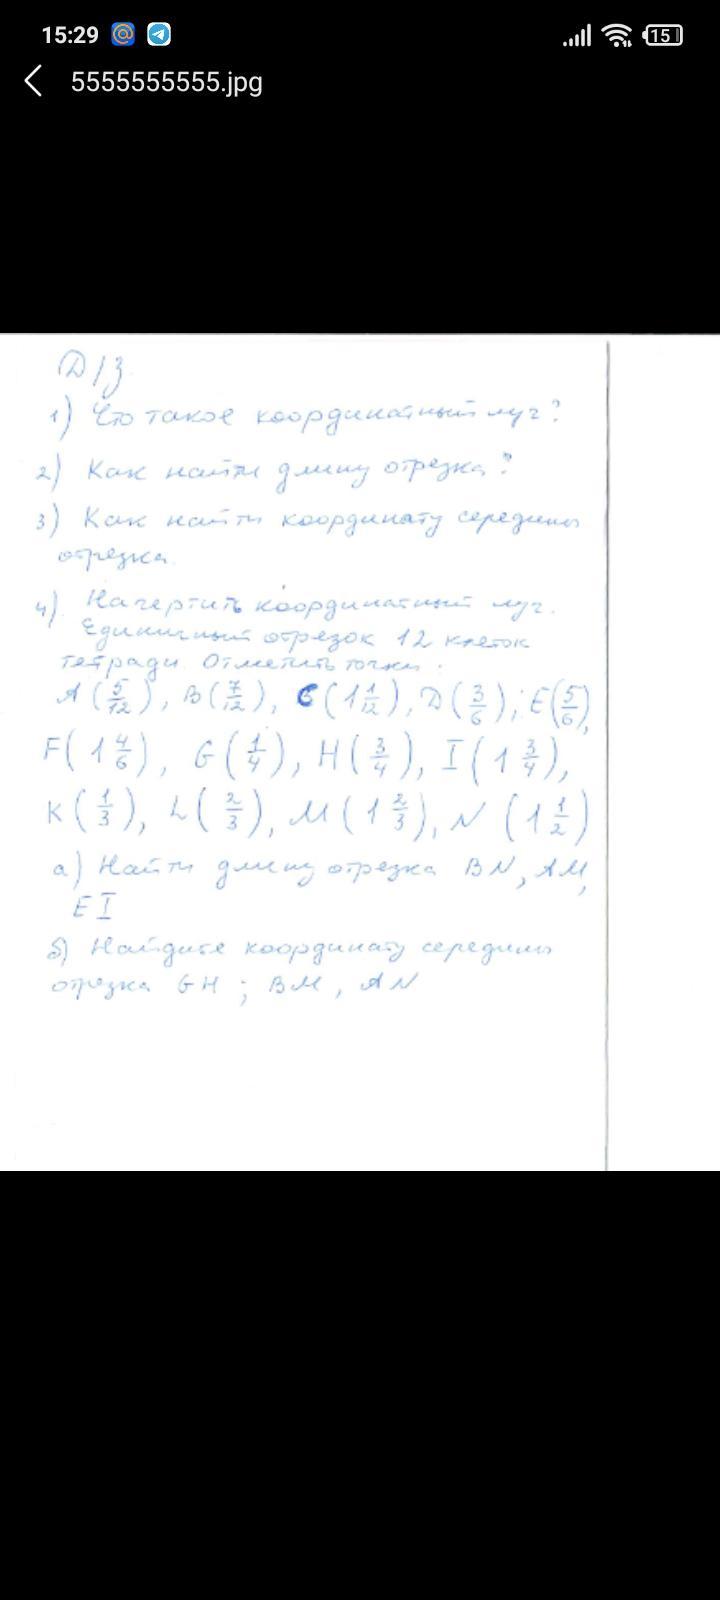 15:29
15
5555555555.jpg
Д/З
1) Что такое координатный луч?
2) Как найти длину отрезка?
3) Как найти координату середины
отрезка.
4). Начертить координатный луч.
Единичный отрезок 12 клеток
тетради. Отметить точки:
A (5/12), B (7/12), C (1 1/12), D (3/6); E (5/6),
F (1 4/6), G (1/4), H (3/4), I (1 3/4),
K (1/3), L (2/3), M (1 2/3), N (1 1/2)
а) Найти длину отрезка BN, AM,
EI
б) Найдите координату середины
отрезка GH; BM, AN